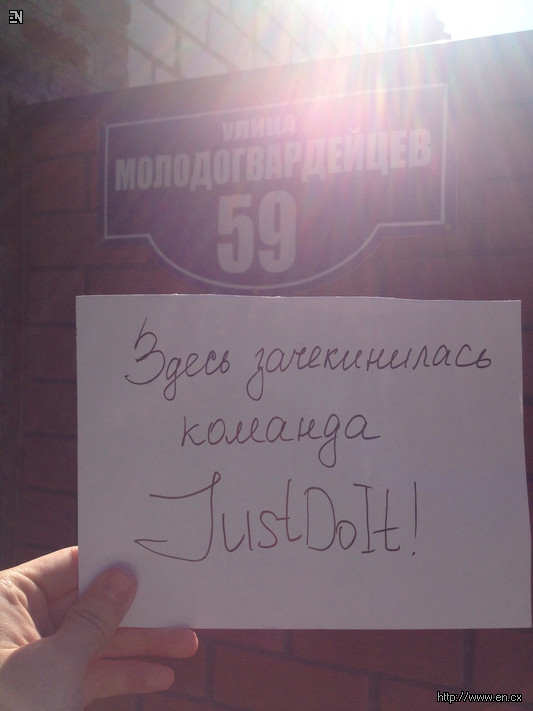 EN
улица
МОЛОДОГВАРДЕЙЦЕВ
59
Здесь зачекинилась
команда
JustDoIt!
http://www.en.cx